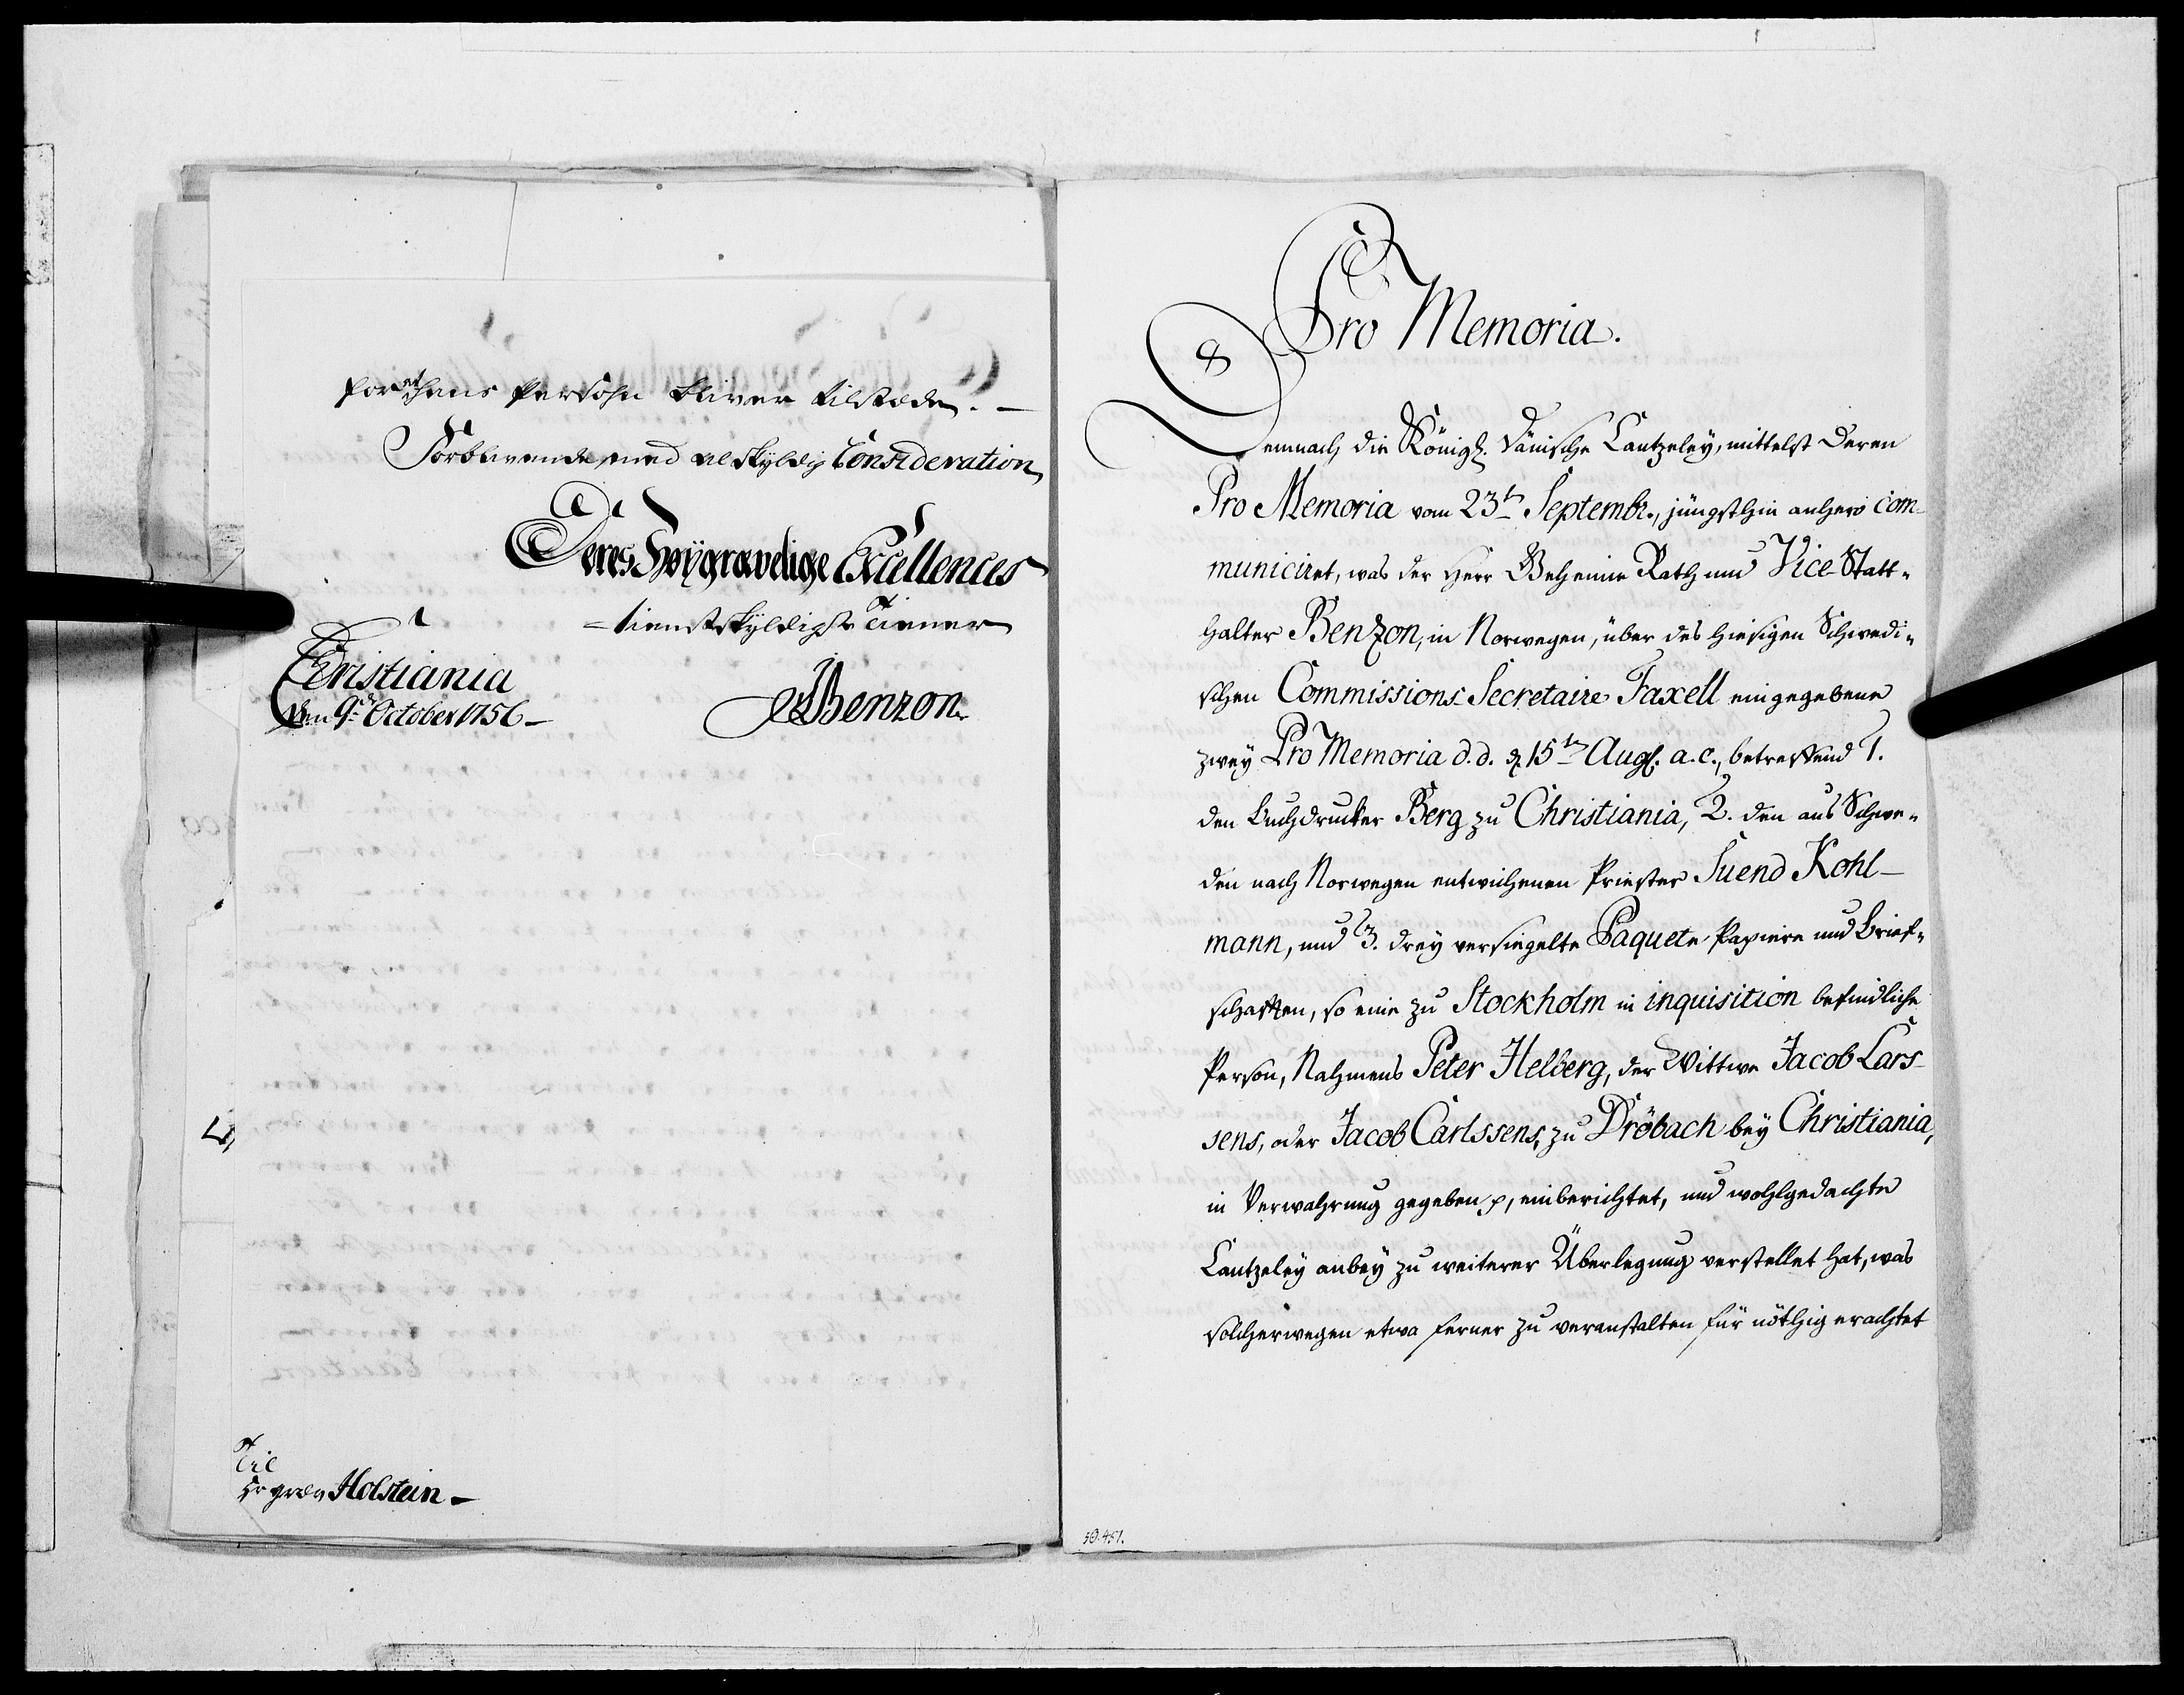 for at hans Persohn bliver tilstæde. —
Forblivende med al skyldig Consideration
Deres Høygrævelige Excellences
= tienstskyldigste Tiener
Christiania
den 9de October 1756 —
JBenzon
Til
Hr græv Holstein —
Pro Memoria.
Demnach die Königl. Dänische Cantzeley, mittelst Deren
Pro Memoria vom 23ten Septembr., jüngsthin anhero com-
municiret, was der Herr Geheime Rath und Vice-Statt-
halter Benzon, in Norwegen, über des hiesigen Schwedi-
schen Commissions-Secretaire Faxell eingegebene
zwey Pro Memoria d. d. d. 15ten Aug. a. c., betreffend 1.
den Buchdrucker Berg zu Christiania, 2. den aus Schwe-
den nach Norwegen entwichenen Priester Suend Kohl-
mann, und 3. drey versiegelte Paquete Papiere und Brief-
schafften, so eine zu Stockholm in inquisition befindliche
Person, Nahmens Peter Helberg, der Wittwe Jacob Lars-
sens, oder Jacob Carlssens, zu Dröbach bey Christiania,
in Verwahrung gegeben p, einberichtet, und wohlgedachte
Cantzeley anbey zu weiterer Überlegung verstellet hat, was
solcherwegen etwa ferner zu veranstalten für nöthig erachtet